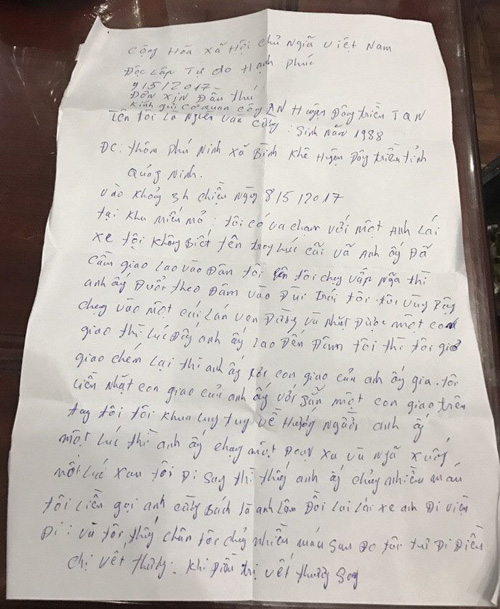 Cộng Hòa Xã Hội Chủ Nghĩa Việt Nam
Độc Lập Tự do Hạnh Phúc
9/5/2017
Đơn xin Đầu thú
Kính gửi Cơ quan Công AN Huyện Đông triều TQN
Tên tôi là Nguyễn Văn Cường Sinh Năm 1988
ĐC: thôn Phú Ninh Xã Bình Khê Huyện Đông triều tỉnh
Quảng Ninh.
Vào khoảng 3h chiều Ngày 8/5/2017
tại khu miếu mỏ: tôi có va chạm với một Anh Lái
xe tôi không Biết tên trong lúc cãi vã Anh ấy Đã
cầm giao Lao vào Đâm tôi tôi chạy vấp Ngã thì
anh ấy Đuổi theo Đâm vào Đùi trái tôi tôi vùng Dậy
chạy vào một cái Lán ven Đường và Nhặt Được một con
giao thì Lúc Đấy anh ấy Lao Đến Đâm tôi thì tôi giơ
giao chém Lại thì anh ấy rơi con giao của anh ấy gia. tôi
Liền Nhặt con giao của anh ấy với Sẵn một con giao trên
tay tôi tôi khua Lung tung về Hướng Người anh ấy
một Lúc thì anh ấy chạy một Đoạn Xa và Ngã Xuống
một Lúc Xau tôi Đi Sang thì thấy anh ấy chảy nhiều máu
tôi liền gọi anh cùng Bách là anh Lâm Đồi Lai Lái xe anh Đi viện
Đi: và tôi thấy chân tôi chảy nhiều máu Sau Đó tôi tự Đi Điều
chị vết thương: khi Điều trị vết thương